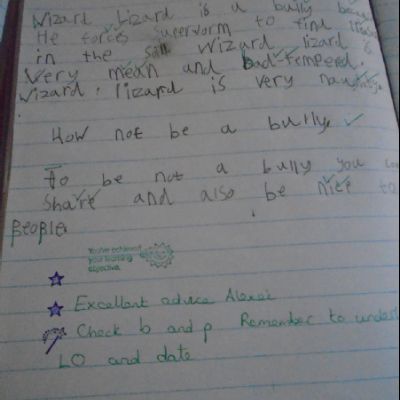 Wizard Lizard is a bully
He forces superworm to find
in the soil Wizard lizard is
Very mean and bad-tempered.
Wizard lizard is very
How not be a bully
To be not a bully you
Share and also be nice to
people.
You've achieved
your learning
objective.
Excellent advice Alexei
Check b and p Remember to
LO and date